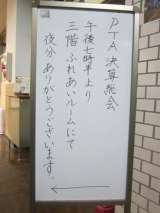 PTA決算総会
午後七時半より
三階ふれあいルームにて
夜分ありがとうございます。